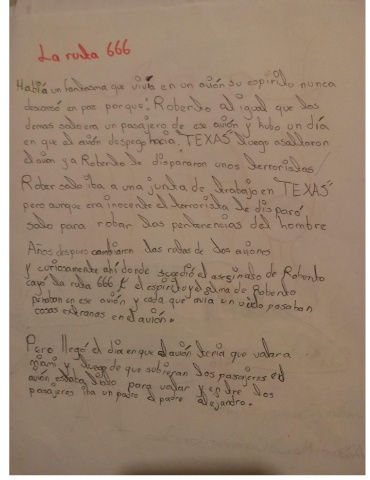 La ruta 666
Había un fantasma que vivía en un avión su espíritu nunca
descansó en paz porque; Roberto al igual que los
demas solo era un pasajero de ese avión y hubo un día
en que el avión despego hacia "TEXAS" luego asaltaron
el avion y a Roberto le dispararon unos terroristas
Rober solo iba a una junta de trabajo en "TEXAS"
pero aunque era inocente el terrorista le disparó
solo para robar las pertenencias del hombre
Años despues cambiaron las rutas de los aviones
y curiosamente ahí donde sucedió el asesinaso de Roberto
cayó la ruta 666 el espíritu y el alma de Roberto
en ese avión y cada que avia un vuelo pasaban
cosas extrañas en el avión.
Pero llegó el día en que el avión tenia que volar a
miami y luego de que subieran los pasajeros el
avión estaba listo para volar y entre los
pasajeros iba un padre el padre alejandro.